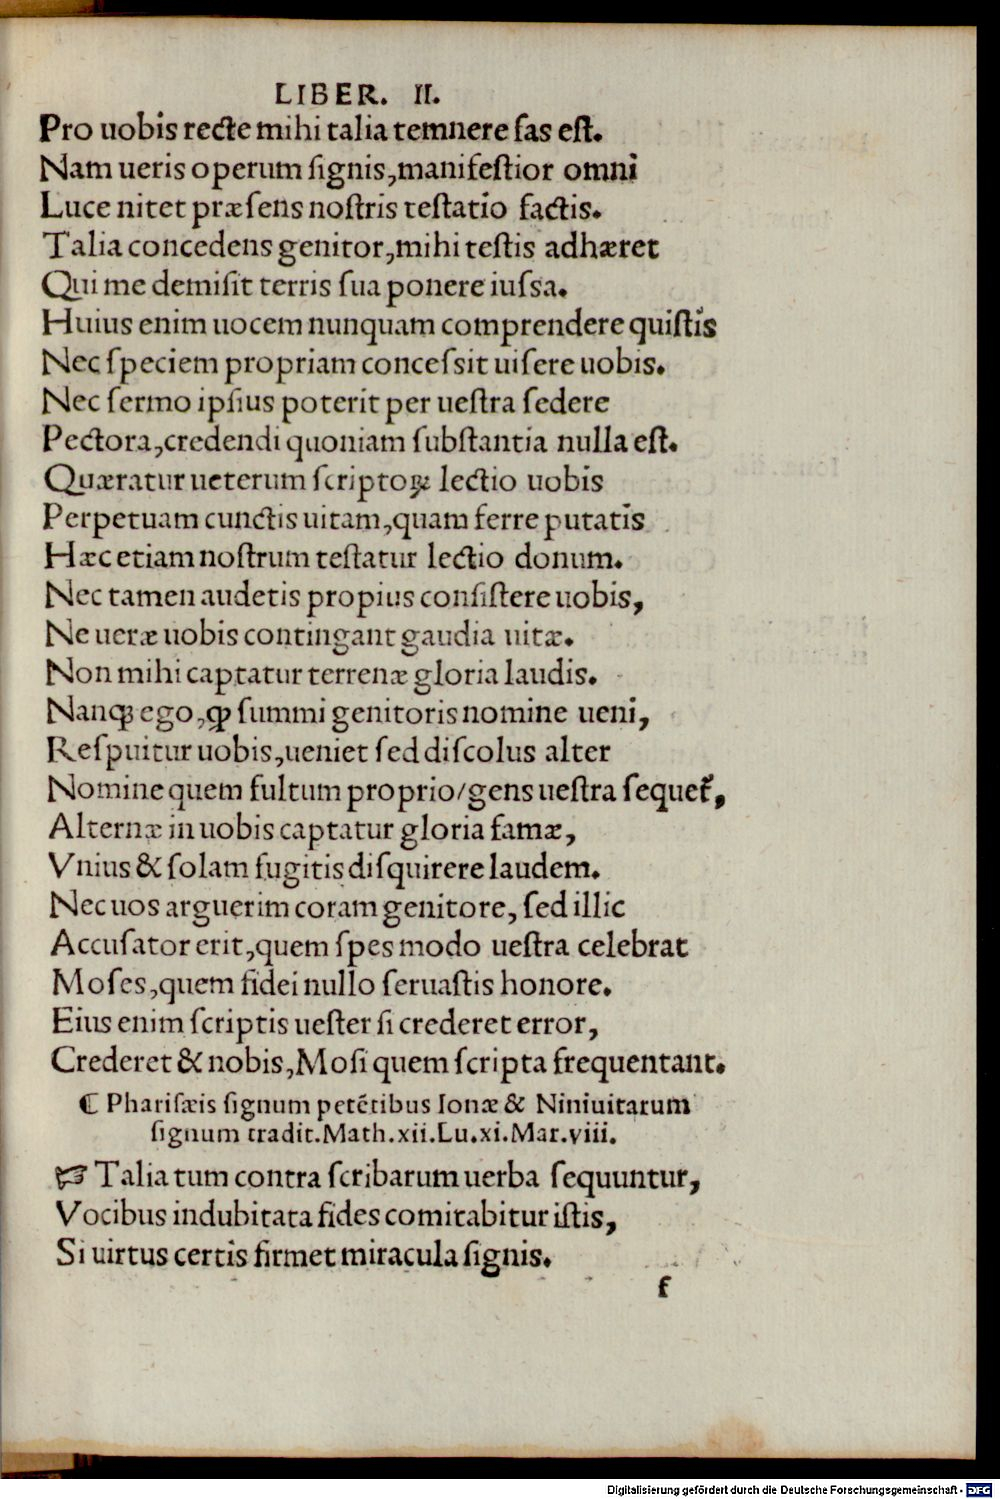 LIBER. II.
Pro uobis recte mihi talia temnere fas est.
Nam ueris operum signis, manifestior omni
Luce nitet præsens nostris testatio factis.
Talia concedens genitor, mihi testis adhæret
Qui me demisit terris sua ponere iussa.
Huius enim uocem nunquam comprendere quistis
Nec speciem propriam concessit uisere uobis.
Nec sermo ipsius poterit per uestra sedere
Pectora, credendi quoniam substantia nulla est.
Quæratur ueterum scriptoꝝ lectio uobis
Perpetuam cunctis uitam, quam ferre putatis
Hæc etiam nostrum testatur lectio donum.
Nec tamen audetis propius consistere uobis,
Ne ueræ uobis contingant gaudia uitæ.
Non mihi captatur terrenæ gloria laudis.
Nanqꝫ ego, ꝙ summi genitoris nomine ueni,
Respuitur uobis, ueniet sed discolus alter
Nomine quem fultum proprio/gens uestra sequet᷑,
Alternæ in uobis captatur gloria famæ,
Vnius & solam fugitis disquirere laudem.
Nec uos arguerim coram genitore, sed illic
Accusator erit, quem spes modo uestra celebrat
Moses, quem fidei nullo seruastis honore.
Eius enim scriptis uester si crederet error,
Crederet & nobis, Mosi quem scripta frequentant.
¶ Pharisæis signum petētibus Ionæ & Niniuitarum
signum tradit. Math.xii.Lu.xi.Mar.viii.
☞ Talia tum contra scribarum uerba sequuntur,
Vocibus indubitata fides comitabitur istis,
Si uirtus certis firmet miracula signis.
f
Digitalisierung gefördert durch die Deutsche Forschungsgemeinschaft - DFG